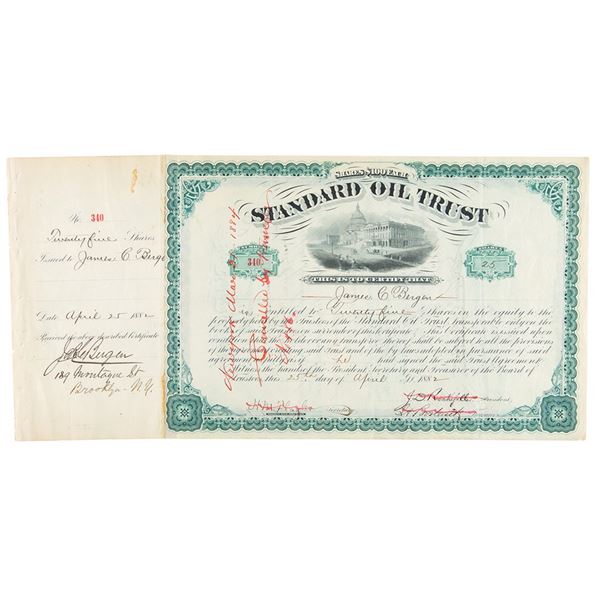 No. 340
Twenty five Shares
Issued to James C Berge
Date April 25 1882
Received the above described Certificate
Jas C Bergen
189 Montague St
Brooklyn - N.Y.
SHARES $100 EACH
STANDARD OIL TRUST
340
25
THIS IS TO CERTIFY THAT
James C Bergen
is entitled to Twenty five Shares in the equity to the
property held by the Trustees of the Standard Oil Trust, transferable only on the
books of said Trustees on surrender of this Certificate. This Certificate is issued upon
condition that the and any transferee thereof shall be subject to all the provisions
of the agreement creating said Trust and of the by laws adopted in pursuance of said
agreement as fully as if had signed the said Trust Agreement
Witness the hands of the President Secretary and Treasurer of the Board of
Trustees this 25th day of April A.D. 1882
President
Secretary
New York 1884
Cancelled by